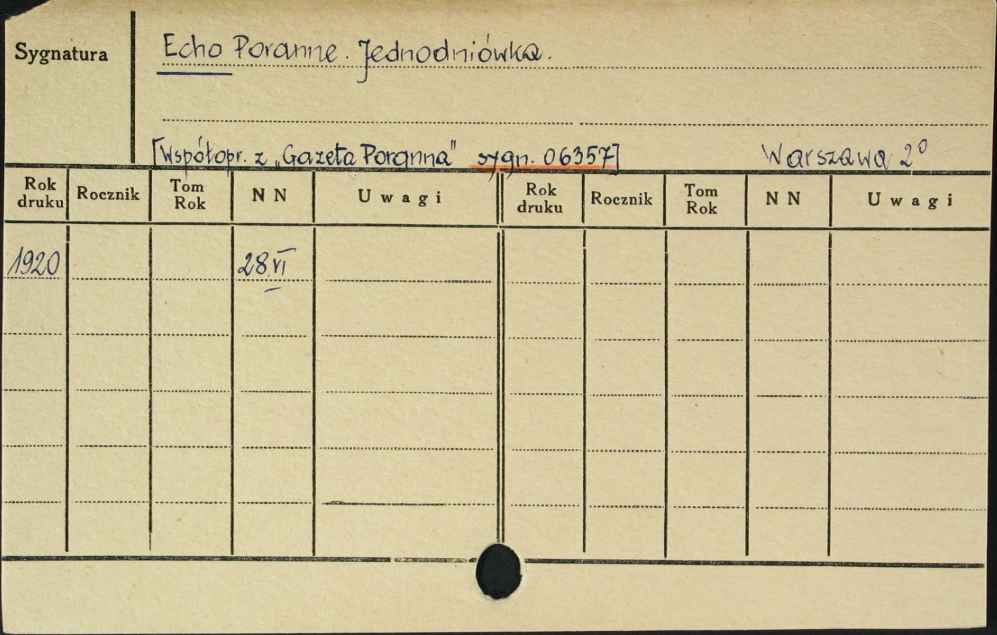 Sygnatura
Echo Poranne. Jednodniówka.
[Współopr. z „Gazeta Poranna" sygn. 06357]
Warszawa 2°
Rok druku Rocznik Tom Rok N N Uwagi Rok druku Rocznik Tom Rok N N Uwagi
1920 28 VI